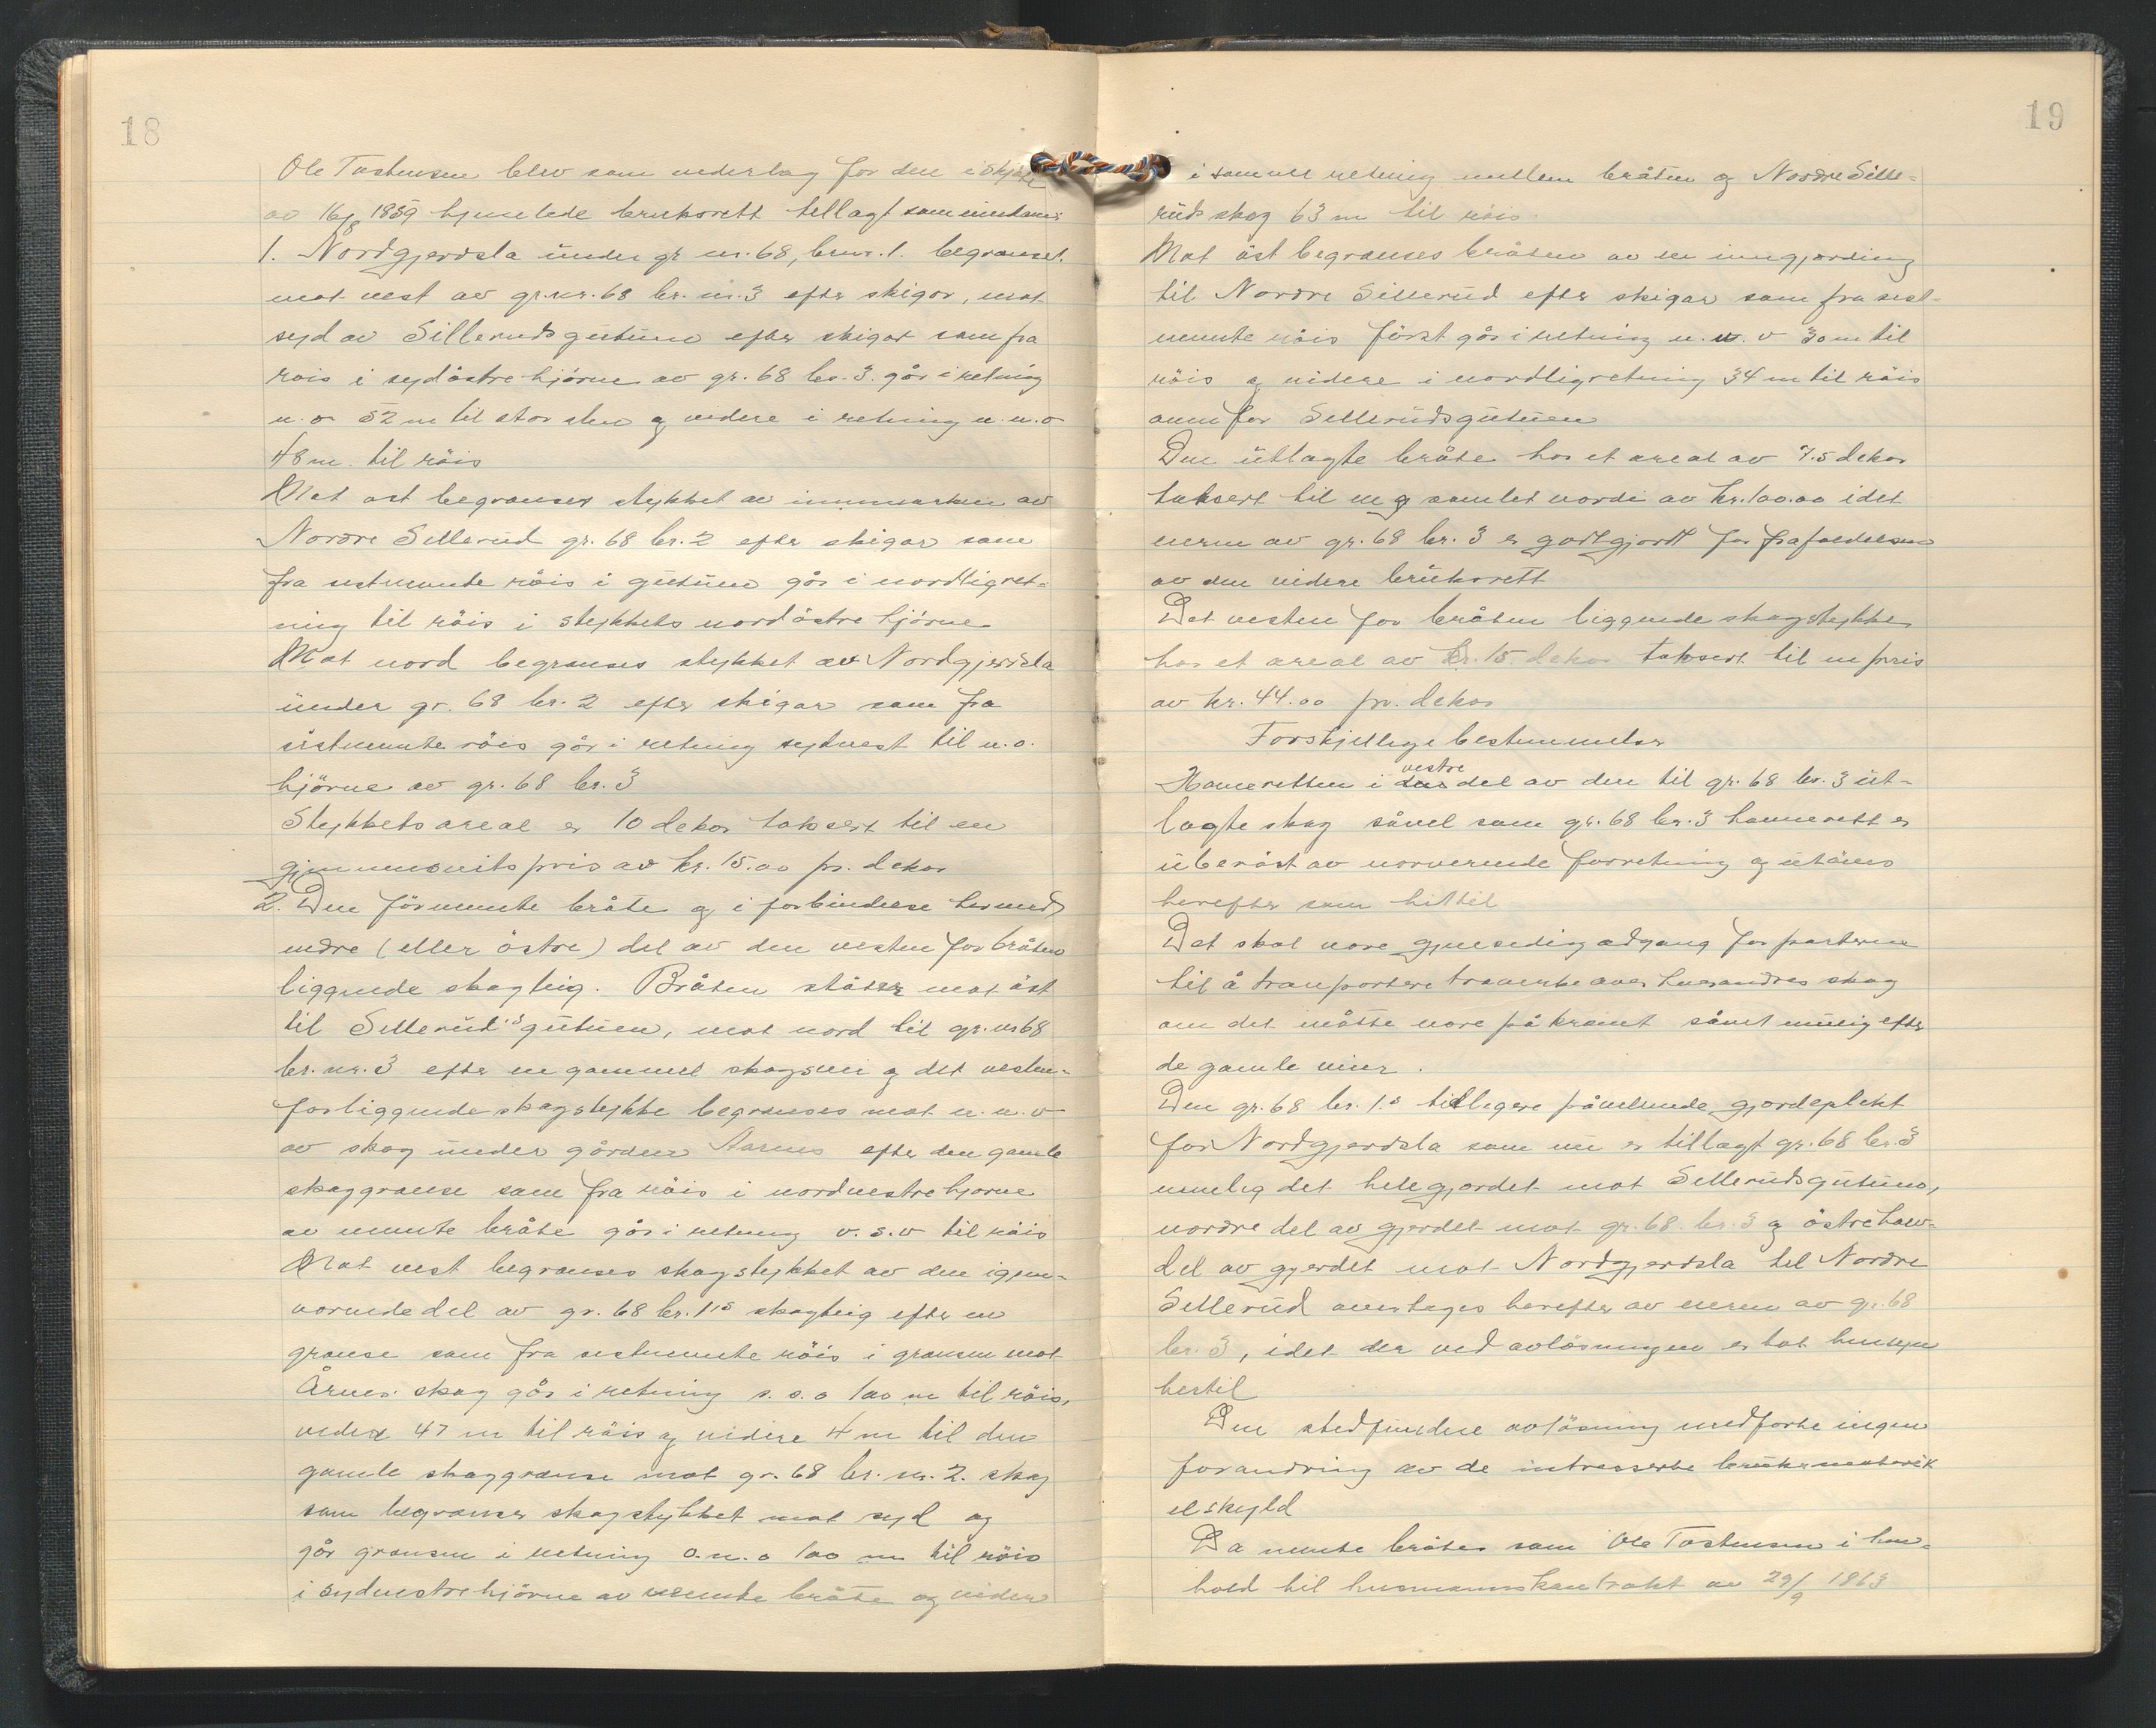 18
Ole Tostensen blev som vederlag for den i skjøte
av 16/8 1859 hjemlede bruksrett tillagt som eiendom:
1. Nordgjerdsla under gr. nr. 68, brnr. 1. begrænset
mot vest av gr.nr. 68 br. nr. 3 efter skigar, mot
syd av Sillerudsgutuen efter skigar som fra
röis i sydöstre hjörne av gr. 68 br. 3. går i retning
n. o 52 m til stor sten og videre i retning n. n. o
48 m. til röis
Mot ost begrænses stykket av innmarken av
Nordre Sillerud gr. 68 br. 2 efter skigar som
fra sistnevnte röis i gutuen går i nordligret-
ning til röis i stykkets nordöstre hjörne
Mot nord begrænses stykket av Nordgjerdsla
under gr. 68 br. 2 efter skigar som fra
sistnevnte röis går i retning sydvest til n. o.
hjörne av gr. 68 br. 3
Stykkets areal er 10 dekar taksert til en
gjennemsnitspris av kr. 15.00 pr. dekar
2. Den förnevnte bråte og i forbindelse hermed
indre (eller östre) del av den vesten for bråten
liggende skogteig. Bråten stöter mot öst
til Sillerud's gutuen, mot nord til gr. nr 68
br. nr. 3 efter en gammel skogsvei og det vesten-
forliggende skogstykke begrænses mot n. n. v
av skog under gården Aarnes efter den gamle
skoggrænse som fra röis i nordvestre hjørne
av nevnte bråte går i retning v. s. v til röis
Mot vest begrænses skogstykket av den igjen-
værende del av gr. 68 br. 1's skogteig efter en
grænse som fra sistnevnte röis i grænsen mot
Årnes skog går i retning s. s. o 100 m til röis,
videre 47 m til röis og videre 4 m til den
gamle skoggrænse mot gr. 68 br. nr. 2. skog
som begrænser skogstykket mot syd og
går grænsen i retning o. n. o 100 m til röis
i sydvestre hjörne av nevnte bråte og videre
19
i samme retning mellem bråten og Nordre Sille-
ruds skog 63 m til röis.
Mot öst begrænses bråten av en inngjerding
til Nordre Sillerud efter skigar som fra sist-
nevnte röis först går i retning n. n. v 30 m til
röis og videre i nordligretning 34 m til röis
ovenfor Sillerudsgutuen
Den utlagte bråte har et areal av 7.5 dekar
taksert til en samlet verdi av kr. 100.00 idet
eieren av gr. 68 br. 3 er godtgjort for frafaldelsen
av den videre bruksrett
Det vesten for bråten liggende skogstykke
har et areal av 15. dekar taksert til en pris
av kr. 44.00 pr. dekar
Forskjellige bestemmelser
Havneretten i vestre del av den til gr. 68 br. 3 ut-
lagte skog såvel som gr. 68 br. 3 havnerett er
uberört av nærværende forretning og utöves
herefter som hittil
Det skal være gjensedig adgang for parterne
til å transportere trævirke over hverandres skog
om det måtte være påkrævet såvit mulig efter
de gamle veier.
Den gr. 68 br. 1.s tidligere påhvilende gjerdeplikt
for Nordgjerdsla som nu er tillagt gr. 68 br. 3
nemlig det hele gjerdet mot Sillerudsgutuen,
nordre del av gjerdet mot gr. 68 br. 3 og östre halv-
del av gjerdet mot Nordgjerdsla til Nordre
Sillerud overtages herefter av eieren av gr. 68
br. 3, idet der ved avlösningen er tat hensyn
hertil
Den stedfundne avlösning medförte ingen
forandring av de interesserte bruks matrik
elskyld
Da nevnte bråte som Ole Tostensen i hen-
hold til husmannskontrakt av 29/9 1863